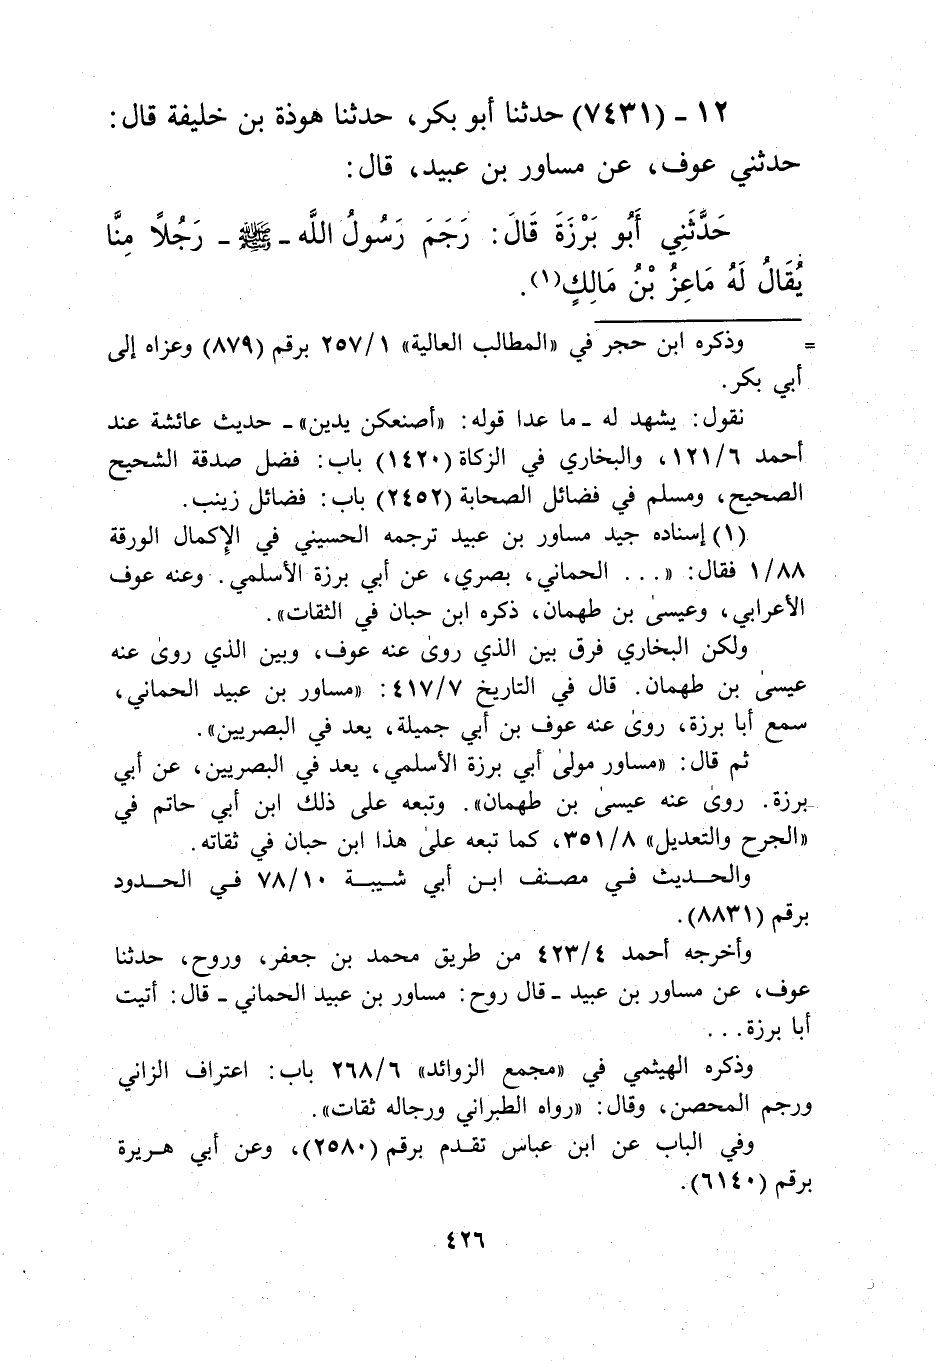 ١٢ - (٧٤٣١) حدثنا أبو بكر، حدثنا هوذة بن خليفة قال:
حدثني عوف، عن مساور بن عبيد، قال:
حَدَّثَنِي أَبُو بَرْزَةَ قَالَ: رَجَمَ رَسُولُ اللَّه - ﷺ - رَجُلاً مِنَّا
يُقَالُ لَهُ مَاعِزُ بْنُ مَالِكٍ(١).
= وذكره ابن حجر في «المطالب العالية» ٢٥٧/١ برقم (٨٧٩) وعزاه إلى
أبي بكر.
نقول: يشهد له - ما عدا قوله: «أصنعكن يدين» - حديث عائشة عند
أحمد ١٢١/٦، والبخاري في الزكاة (١٤٢٠) باب: فضل صدقة الشحيح
الصحيح، ومسلم في فضائل الصحابة (٢٤٥٢) باب: فضائل زينب.
(١) إسناده جيد مساور بن عبيد ترجمه الحسيني في الإكمال الورقة
١/٨٨ فقال: «... الحماني، بصري، عن أبي برزة الأسلمي. وعنه عوف
الأعرابي، وعيسىٰ بن طهمان، ذكره ابن حبان في الثقات».
ولكن البخاري فرق بين الذي روىٰ عنه عوف، وبين الذي روىٰ عنه
عيسىٰ بن طهمان. قال في التاريخ ٤١٧/٧: «مساور بن عبيد الحماني،
سمع أبا برزة، روىٰ عنه عوف بن أبي جميلة، يعد في البصريين».
ثم قال: «مساور مولىٰ أبي برزة الأسلمي، يعد في البصريين، عن أبي
برزة. روىٰ عنه عيسىٰ بن طهمان». وتبعه على ذلك ابن أبي حاتم في
«الجرح والتعديل» ٣٥١/٨، كما تبعه علىٰ هذا ابن حبان في ثقاته.
والحديث في مصنف ابن أبي شيبة ٧٨/١٠ في الحدود
برقم (٨٨٣١).
وأخرجه أحمد ٤٢٣/٤ من طريق محمد بن جعفر، وروح، حدثنا
عوف، عن مساور بن عبيد - قال روح: مساور بن عبيد الحماني - قال: أتيت
أبا برزة...
وذكره الهيثمي في «مجمع الزوائد» ٢٦٨/٦ باب: اعتراف الزاني
ورجم المحصن، وقال: «رواه الطبراني ورجاله ثقات».
وفي الباب عن ابن عباس تقدم برقم (٢٥٨٠)، وعن أبي هريرة
برقم (٦١٤٠).
٤٢٦